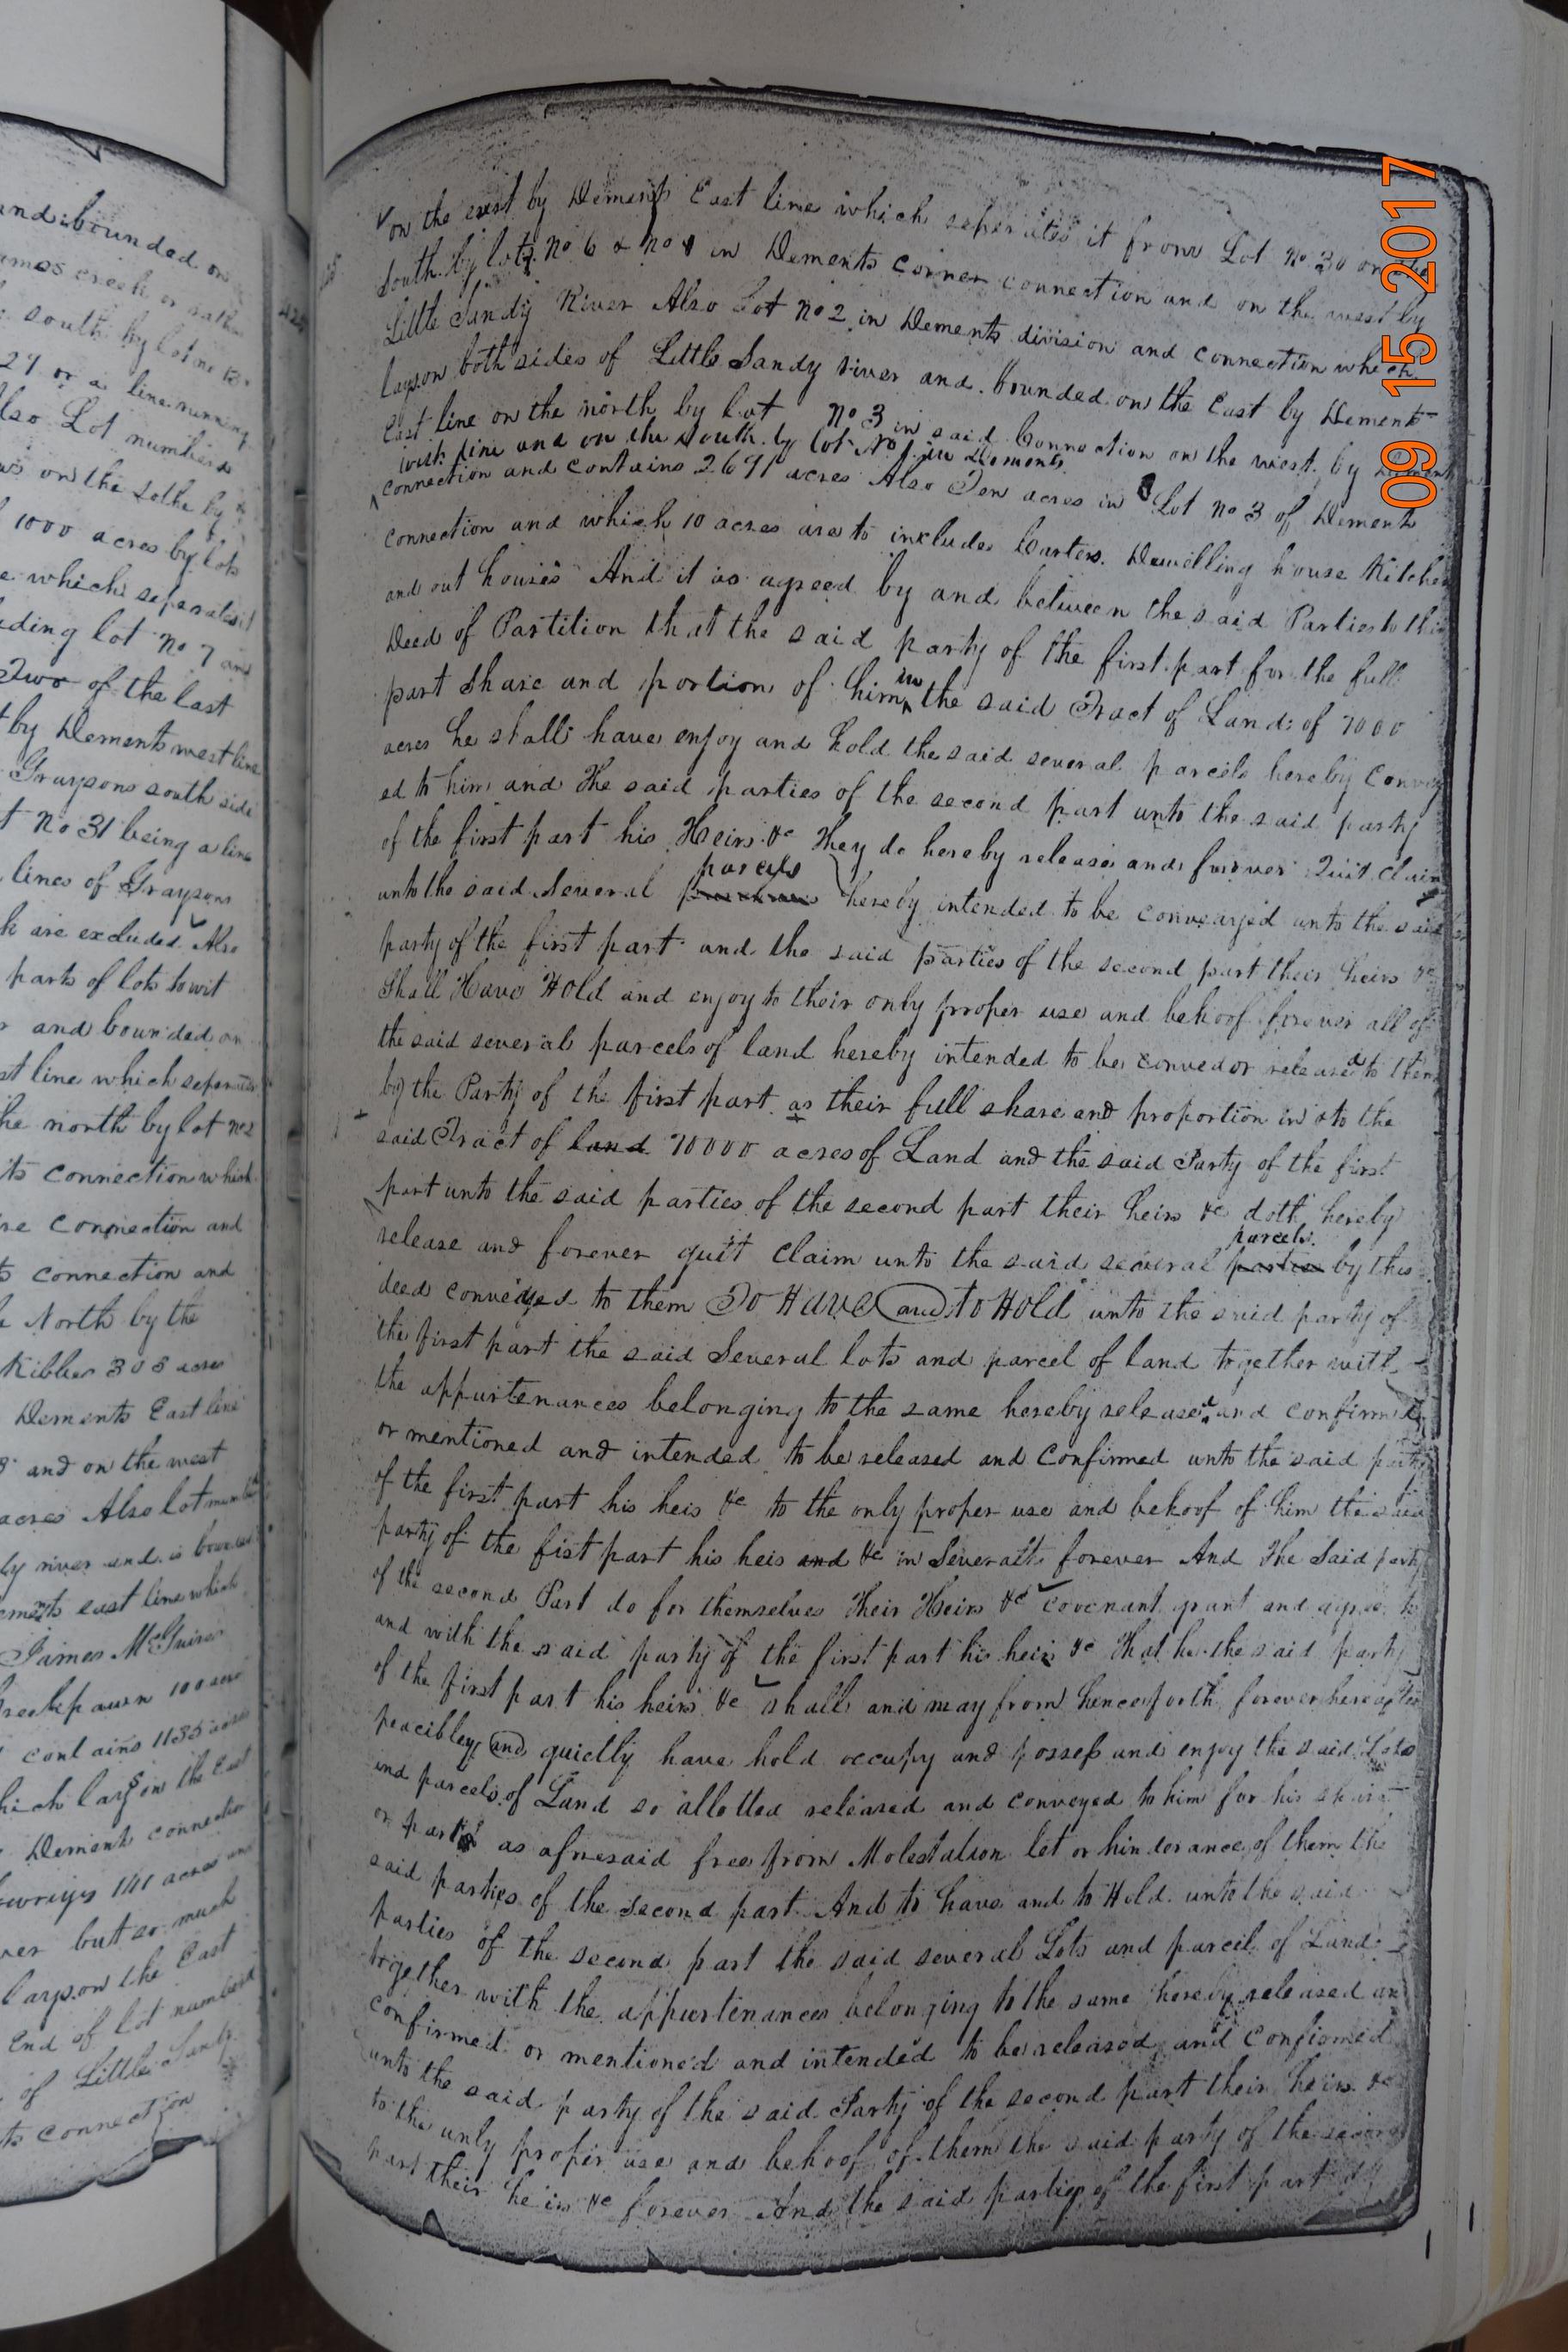 and bounded on
south by lot no
27 or a line running
Also Lot numbers
1000 acres by lots
which seperates it
ding lot No 7 and
Two of the last
by Dements west line
Graysons south side
No 31 being a line
lines of Graysons
are excluded Also
parts of lots to wit
and bounded on
st line which seperates
he north by lot no 2
connection which
connection and
connection and
North by the
Kibber 305 acres
Dements East line
and on the west
acres Also lot number
ly river and is bounded
ments east line which
James McGuires
100 acre
contains 1135 acres
hich lays on the East
Dement connection
141 acres and
ver but so much
lays on the East
End of lot numbered
of Little Sandy
ts connection
on the east by Dements East line which seperates it from Lot No 30 on the
South by lots No 6 & No 1 in Dements corner connection and on the west by
Little Sandy River Also Lot No 2 in Dements division and connection which
lays on both sides of Little Sandy river and bounded on the East by Dements
East line on the north by Lot No 3 in said Connection on the west by Dements
west line and on the South by lot No 1 in Dements
connection and contains 2691 acres Also Ten acres in Lot No 3 of Dements
connection and which 10 acres are to include Carters Dewelling house Kitchen
and out houses And it is agreed by and between the said Parties to this
Deed of Partition that the said party of the first part for the full
part Share and portion of him in the said Tract of Land of 7000
acres he shall have enjoy and hold the said several parcels hereby Convey
ed to him and The said parties of the second part unto the said party
of the first part his Heirs &c They do hereby release and forever Quit Claim
unto the said Several parcels hereby intended to be conveayed unto the said
party of the first part and the said parties of the second part their heirs &c
Shall Have Hold and enjoy to their only proper use and behoof forever all of
the said several parcels of land hereby intended to be conved or released to them
by the Party of the first part as their full share and proportion in & to the
said Tract of land 70000 acres of Land and the said Party of the first
part unto the said parties of the second part their heirs &c doth hereby
release and forever quit Claim unto the said several parties parcels by this
deed conveyed to them To Have and to Hold unto the said party of
the first part the said Several lots and parcel of land together with
the appurtenances belonging to the same hereby released and confirmed
or mentioned and intended to be released and Confirmed unto the said party
of the first part his heis &c to the only proper use and behoof of him the said
party of the fist part his heis and &c in Severalts forever And The Said party
of the second Part do for themselves Their Heirs &c covenant grant and agree to
and with the said party of the first part his heirs &c That he the said party
of the first part his heirs &c shall and may from henceforth forever hereafter
peacibley and quietly have hold occupy and possess and enjoy the said Lots
and parcels of Land so allotted released and conveyed to him for his share
or part as aforesaid free from Molestation let or hinderance of them the
said parties of the second part And to have and to Hold unto the said
parties of the second part the said several Lots and parcel of Land
together with the appurtenances belonging to the same hereby released an
confirmed or mentioned and intended to be released and Confirmed
unto the said party of the said Party of the second part their heirs &c
to the only proper use and behoof of them the said party of the second
part their heirs &c forever And the said parties of the first part
09 15 2017